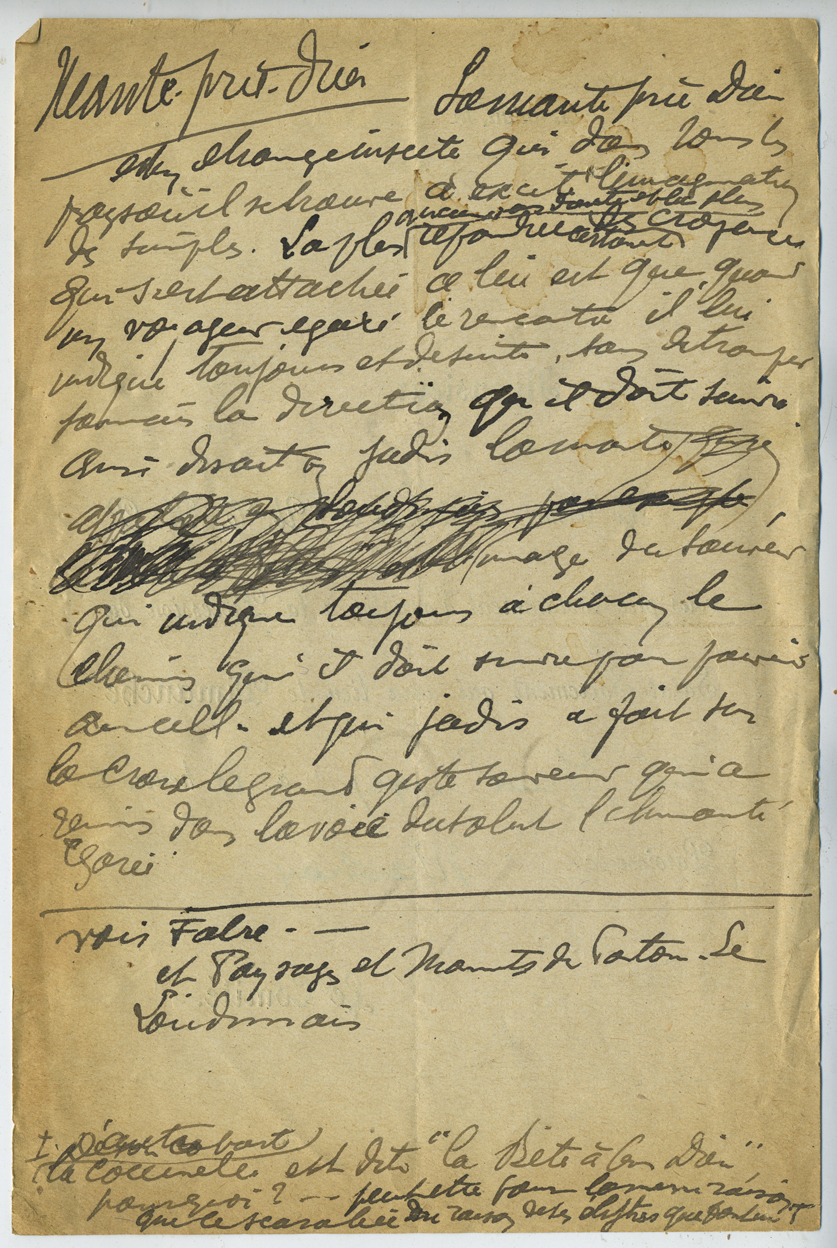 Mante-prie-Dieu La mante prie Dieu
est un étrange insecte qui dans tous les
pays où il se trouve a excité l'imagination
des simples. La plus répandue des croyances
qui s'est attachée à lui est que, quand
un voyageur égaré le rencontre il lui
indique toujours et de suite, sans se tromper
jamais la direction qu'il doit suivre
Aussi disait on jadis la mante
image du sauveur
qui indique toujours à chacun le
chemin qu'il doit suivre pour parvenir
au ciel. et qui jadis a fait sur
la Croix le grand geste sauveur qui a
remis dans la voie du salut l'humanité
égarée
voir Fabre - —
et Paysages et Monuts du Poitou. Le
Loudunais
la coccinelle est dite "la Bête à bon Dieu"
pourquoi? -- peut être pour la même raison
que le scarabée en raison de ses